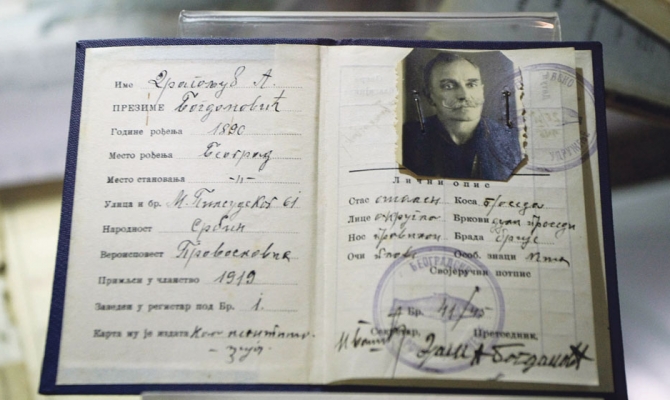 Име Драгољуб А.
ПРЕЗИМЕ Богдановић
Године рођења 1890
Место рођења Београд
Место становања -„-
Улица и бр. М. Пилсудског 61
Народност Србин
Вероисповест
Примљен у чланство 1919
Заведен у регистар под Бр. 1.
Карта му је издата Као
Лични опис
Стас Коса проседа
Лице округло Бркови проседи
Нос правилан Брада брије
Очи Особ. знаци
Својеручни потпис
Бр. 41/45
Секретар, Претседник,
Богдановић